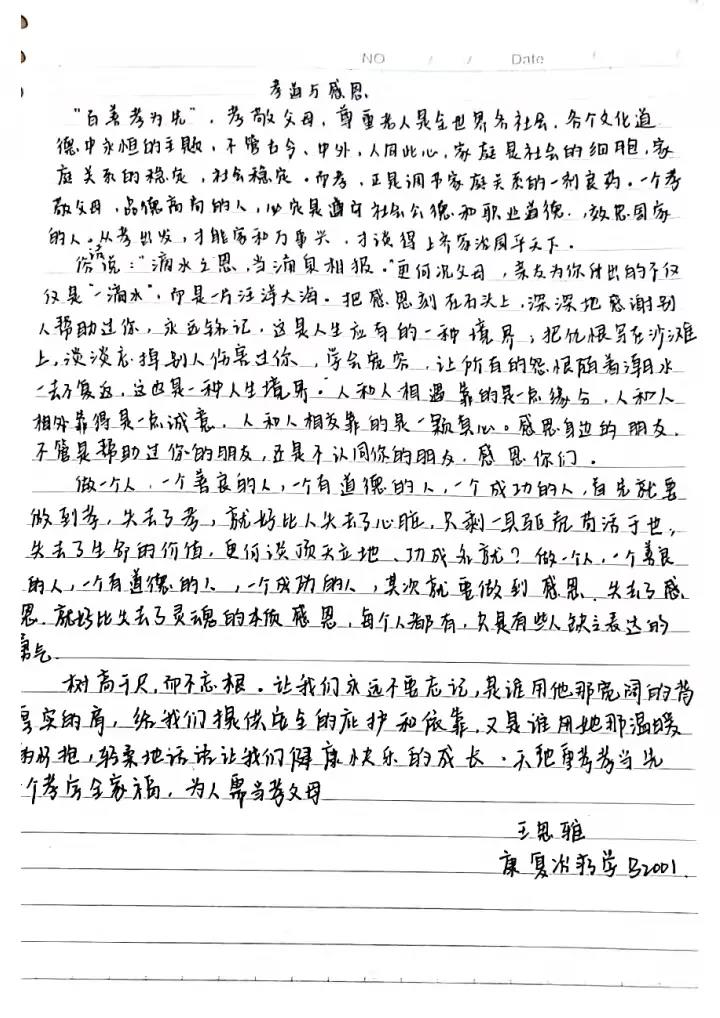 NO / / Date / /
孝道与感恩
"百善孝为先",孝敬父母,尊重老人是全世界各社会,各个文化道
德中永恒的主题,不管古今、中外,人同此心,家庭是社会的细胞,家
庭关系的稳定,社会稳定。而孝,正是调节家庭关系的一剂良药。一个孝
敬父母,品德高尚的人,必定是遵守社会公德和职业道德,效忠国家
的人。从孝出发,才能家和万事兴,才谈得上齐家治国平天下。
俗话说:"滴水之恩,当涌泉相报。"更何况父母,亲友为你付出的不仅
仅是"一滴水",而是一片汪洋大海。把感恩刻在石头上,深深地感谢别
人帮助过你,永远铭记,这是人生应有的一种境界;把仇恨写在沙滩
上,淡淡忘掉别人伤害过你,学会宽容,让所有的怨恨随着潮水
一去不复返,这也是一种人生境界。人和人相遇靠的是一点缘分,人和人
相处靠得是一点诚意,人和人相爱靠的是一颗真心。感恩身边的朋友,
不管是帮助过你的朋友,还是不认同你的朋友,感恩你们。
做一个人,一个善良的人,一个有道德的人,一个成功的人,首先就要
做到孝,失去了孝,就好比人失去了心脏,只剩一具躯壳苟活于世,
失去了生命的价值,更何谈顶天立地、功成名就?做一个人,一个善良
的人,一个有道德的人,一个成功的人,其次就要做到感恩,失去了感
恩,就好比失去了灵魂的本质感恩,每个人都有,只是有些人缺乏表达的
勇气
树高千尺,而不忘根。让我们永远不要忘记,是谁用他那宽阔的背
厚实的肩,给我们提供安全的庇护和依靠,又是谁用她那温暖
的怀抱,轻柔地话语让我们健康快乐的成长。天地重孝孝当先
一个孝字全家福,为人需当孝父母
王思雅
康复治疗学B2001.